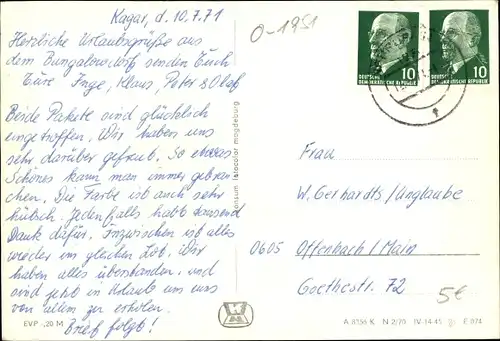 Kagar, d. 10.7.71
Herzliche Urlaubsgrüße aus
dem Bungalowdorf senden Euch
Eure Inge, Klaus, Peter & Olaf
Beide Pakete sind glücklich
eingetroffen. Wir haben uns
sehr darüber gefreut. So etwas
Schönes kann man immer gebrau-
chen. Die Farbe ist auch sehr
hübsch. Jedenfalls habt tausend
Dank dafür. Inzwischen ist alles
wieder im gleichen Lot. Wir
haben alles überstanden und
sind jetzt in Urlaub um uns
von allem zu erholen.
Brief folgt!
EVP -,20 M
magdeburg
O-1951
DEUTSCHE
DEMOKRATISCHE REPUBLIK
10
DEUTSCHE
DEMOKRATISCHE REPUBLIK
10
Frau
W. Gerhardts/Unglaube
0605 Offenbach/Main
Goethestr. 72
5€
A 8356 K N 2/70 IV-14-45 E 074